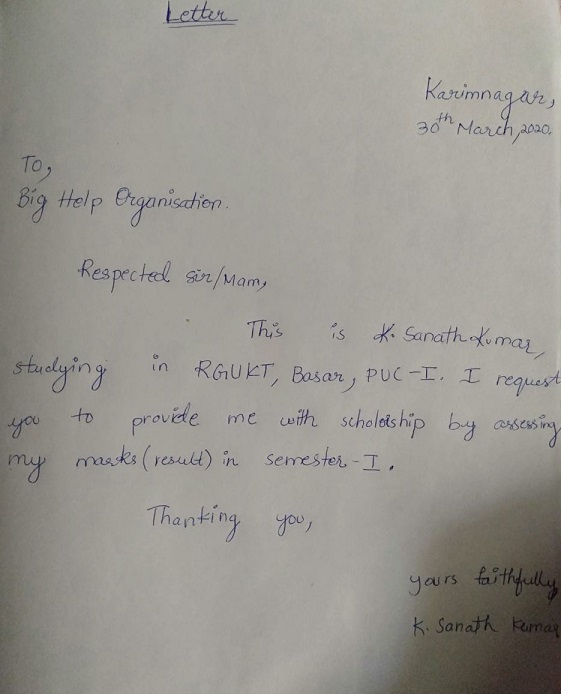 Letter
Karimnagar,
30th March, 2020.
To,
Big Help Organisation.
Respected Sir/Mam,
This is K. Sanath Kumar,
studying in RGUKT, Basar, PUC-I. I request
you to provide me with scholarship by assessing
my marks (result) in semester-I.
Thanking you,
yours faithfully
K. Sanath Kumar